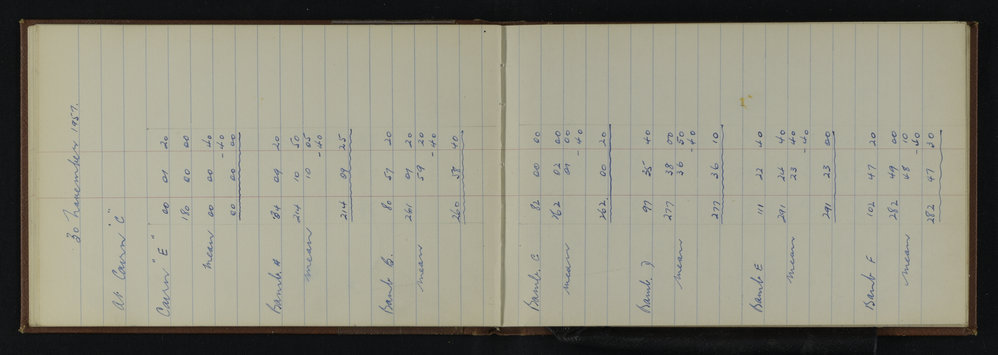 30 November 1957.
At Cairn "C"
Cairn "E" 00 01 20
180 00 00
mean 00 00 40
-40
00 00 00
Bamb. A 34 09 20
214 10 50
mean 10 05
-40
214 09 25
Bamb B. 80 57 20
261 01 20
mean 59 20
-40
260 58 40
Bamb. C 82 00 00
262 02 00
mean 01 00
-40
262 00 20
Bamb. D 97 35 40
277 38 00
mean 36 50
-40
277 36 10
Bamb E 111 22 40
291 24 40
mean 23 40
-40
291 23 00
Bamb F 102 47 20
282 49 00
mean 48 10
-40
282 47 30